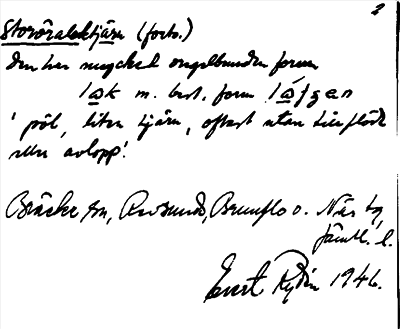 2
Stororaloktjärn (forts.)
den här mycket ongelbundna formen
lok m. best. form lójgen
' pöl, liten tjärn, oftast utan tillflöde
eller avlopp'.
Bräcke sn, Revsunds, Brunflo o. Näs tg,
Jämtl. l.
Evert Rydin 1946.